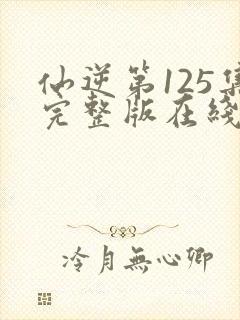 仙逆第125集
完整版在綫
冷月無心卿